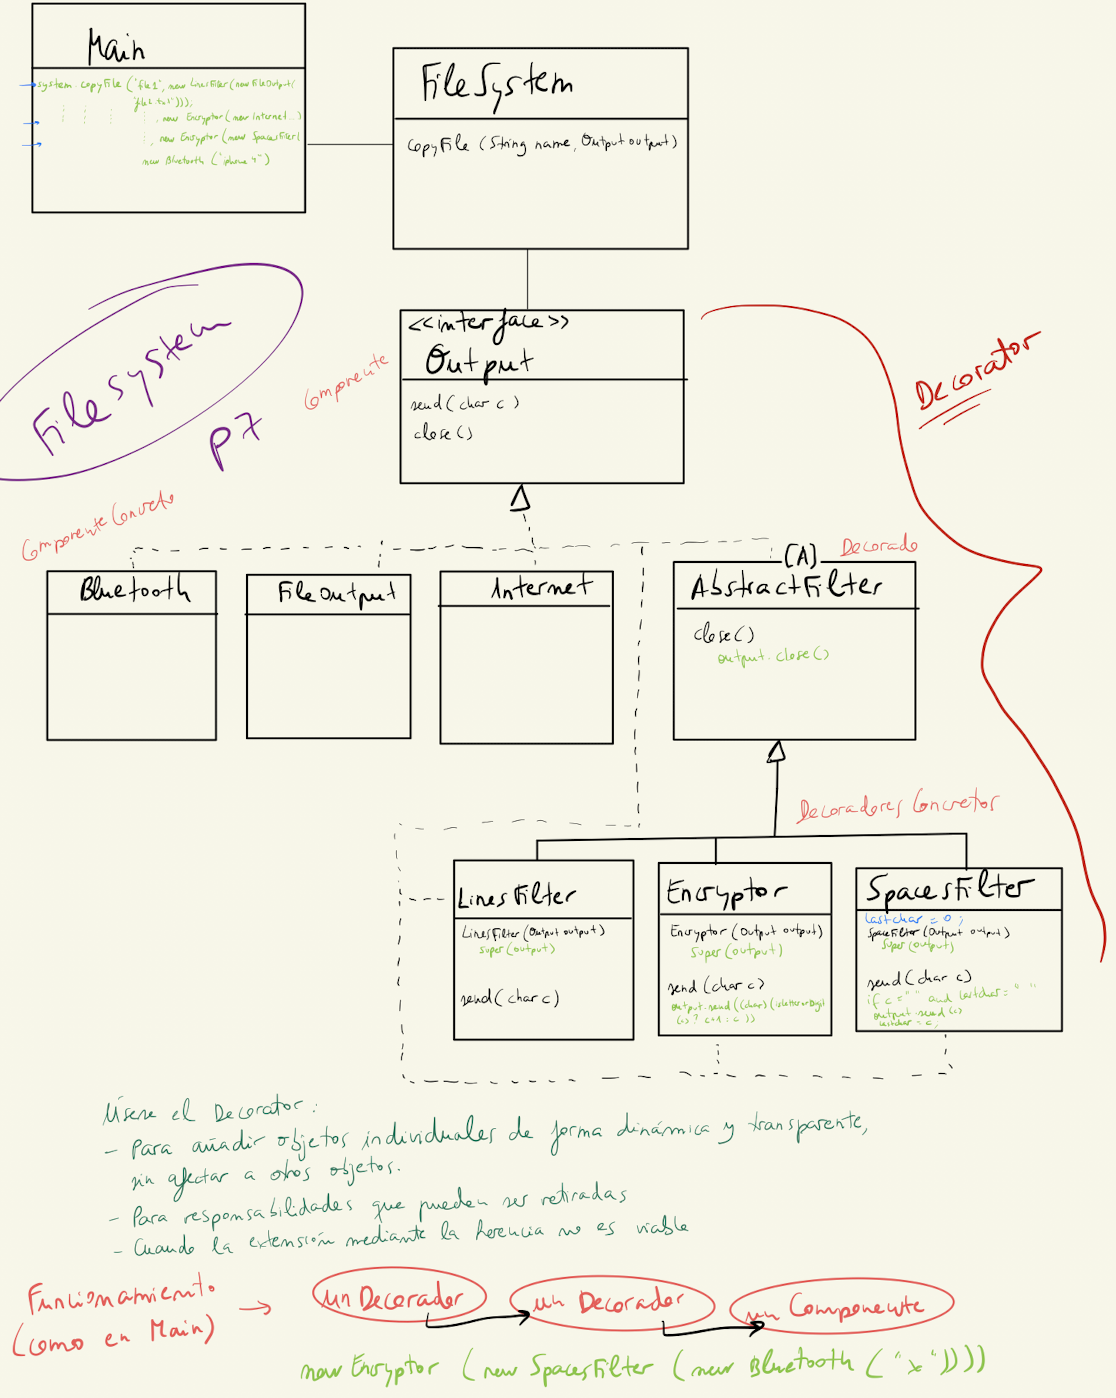 Main
system copyFile ("file1", new LinesFilter(new FileOutput(
"file2.txt")));
, new Encryptor (new Internet...)
, new Encryptor (new SpacesFilter(
new Bluetooth ("iphone 4")
FileSystem
copyFile (String name, Output output)
Filesystem
P7
<<interface>>
Output
send( char c )
close()
Componente
Decorator
Componente Concreto
Bluetooth
FileOutput
Internet
(A)
Decorado
AbstractFilter
close()
output.close()
Decoradores Concretos
LinesFilter
LinesFilter(Output output)
super(output)
send(char c)
Encryptor
Encryptor (Output output)
super(output)
send (char c)
output.send((char)(isLetterOrDigit
(c)? c+1 : c ))
SpacesFilter
lastchar = 0;
SpaceFilter (Output output)
super(output)
send(char c)
if c = " " and lastchar = " "
output.send(c)
lastchar = c;
Úsese el Decorator:
- Para añadir objetos individuales de forma dinámica y transparente,
sin afectar a otros objetos.
- Para responsabilidades que pueden ser retiradas
- Cuando la extensión mediante la herencia no es viable
Funcionamiento
(como en Main)
un Decorador
un Decorador
un Componente
new Encryptor (new SpacesFilter (new Bluetooth ("x"))))